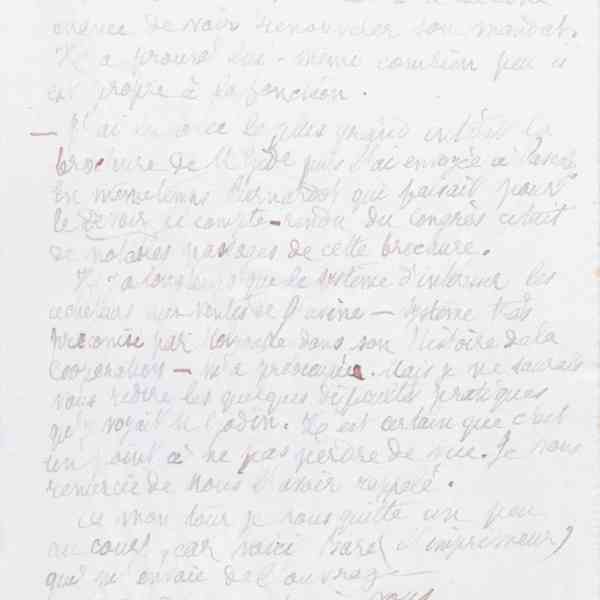 de voir renouveler son mandat.
Il a prouvé lui-même combien peu il
est propre à la fonction.
— J'ai lu avec le plus grand intérêt la
brochure de M. Gide puis l'ai envoyée à
en même temps Bernardot qui faisait pour
le Devoir le compte-rendu du Congrès citait
de notables passages de cette brochure.
Il y a longtemps que le système d'intéresser les
aux ventes de l'usine — système très
préconisé par dans son Histoire de la
Coopération — m'a préoccupée. Mais je ne saurais
vous redire les quelques difficultés pratiques
qu'y voyait M. Godin. Il est certain que c'est
un point à ne pas perdre de vue. Je vous
remercie de nous l'avoir rappelé.
A mon tour je vous quitte un peu
au court, car voici Baré (l'imprimeur)
qui m'envoie de l'ouvrage
vous